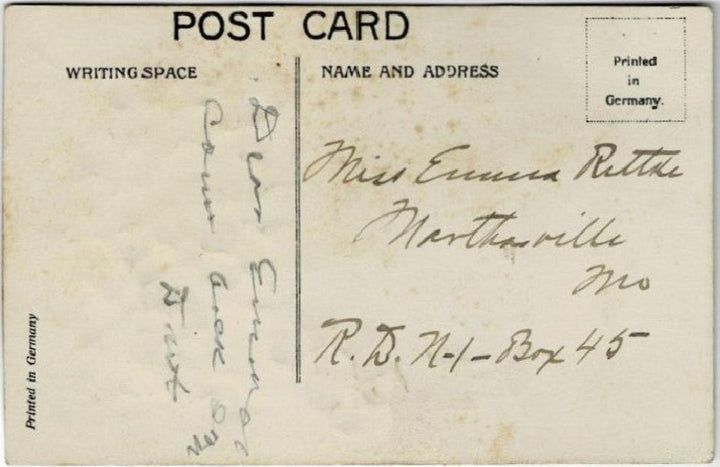 POST CARD
WRITING SPACE
NAME AND ADDRESS
Printed
in
Germany.
Dear Emma
Come
Miss Emma Rettke
Marthasville
Mo
R. D. N-1-Box 45
Printed in Germany